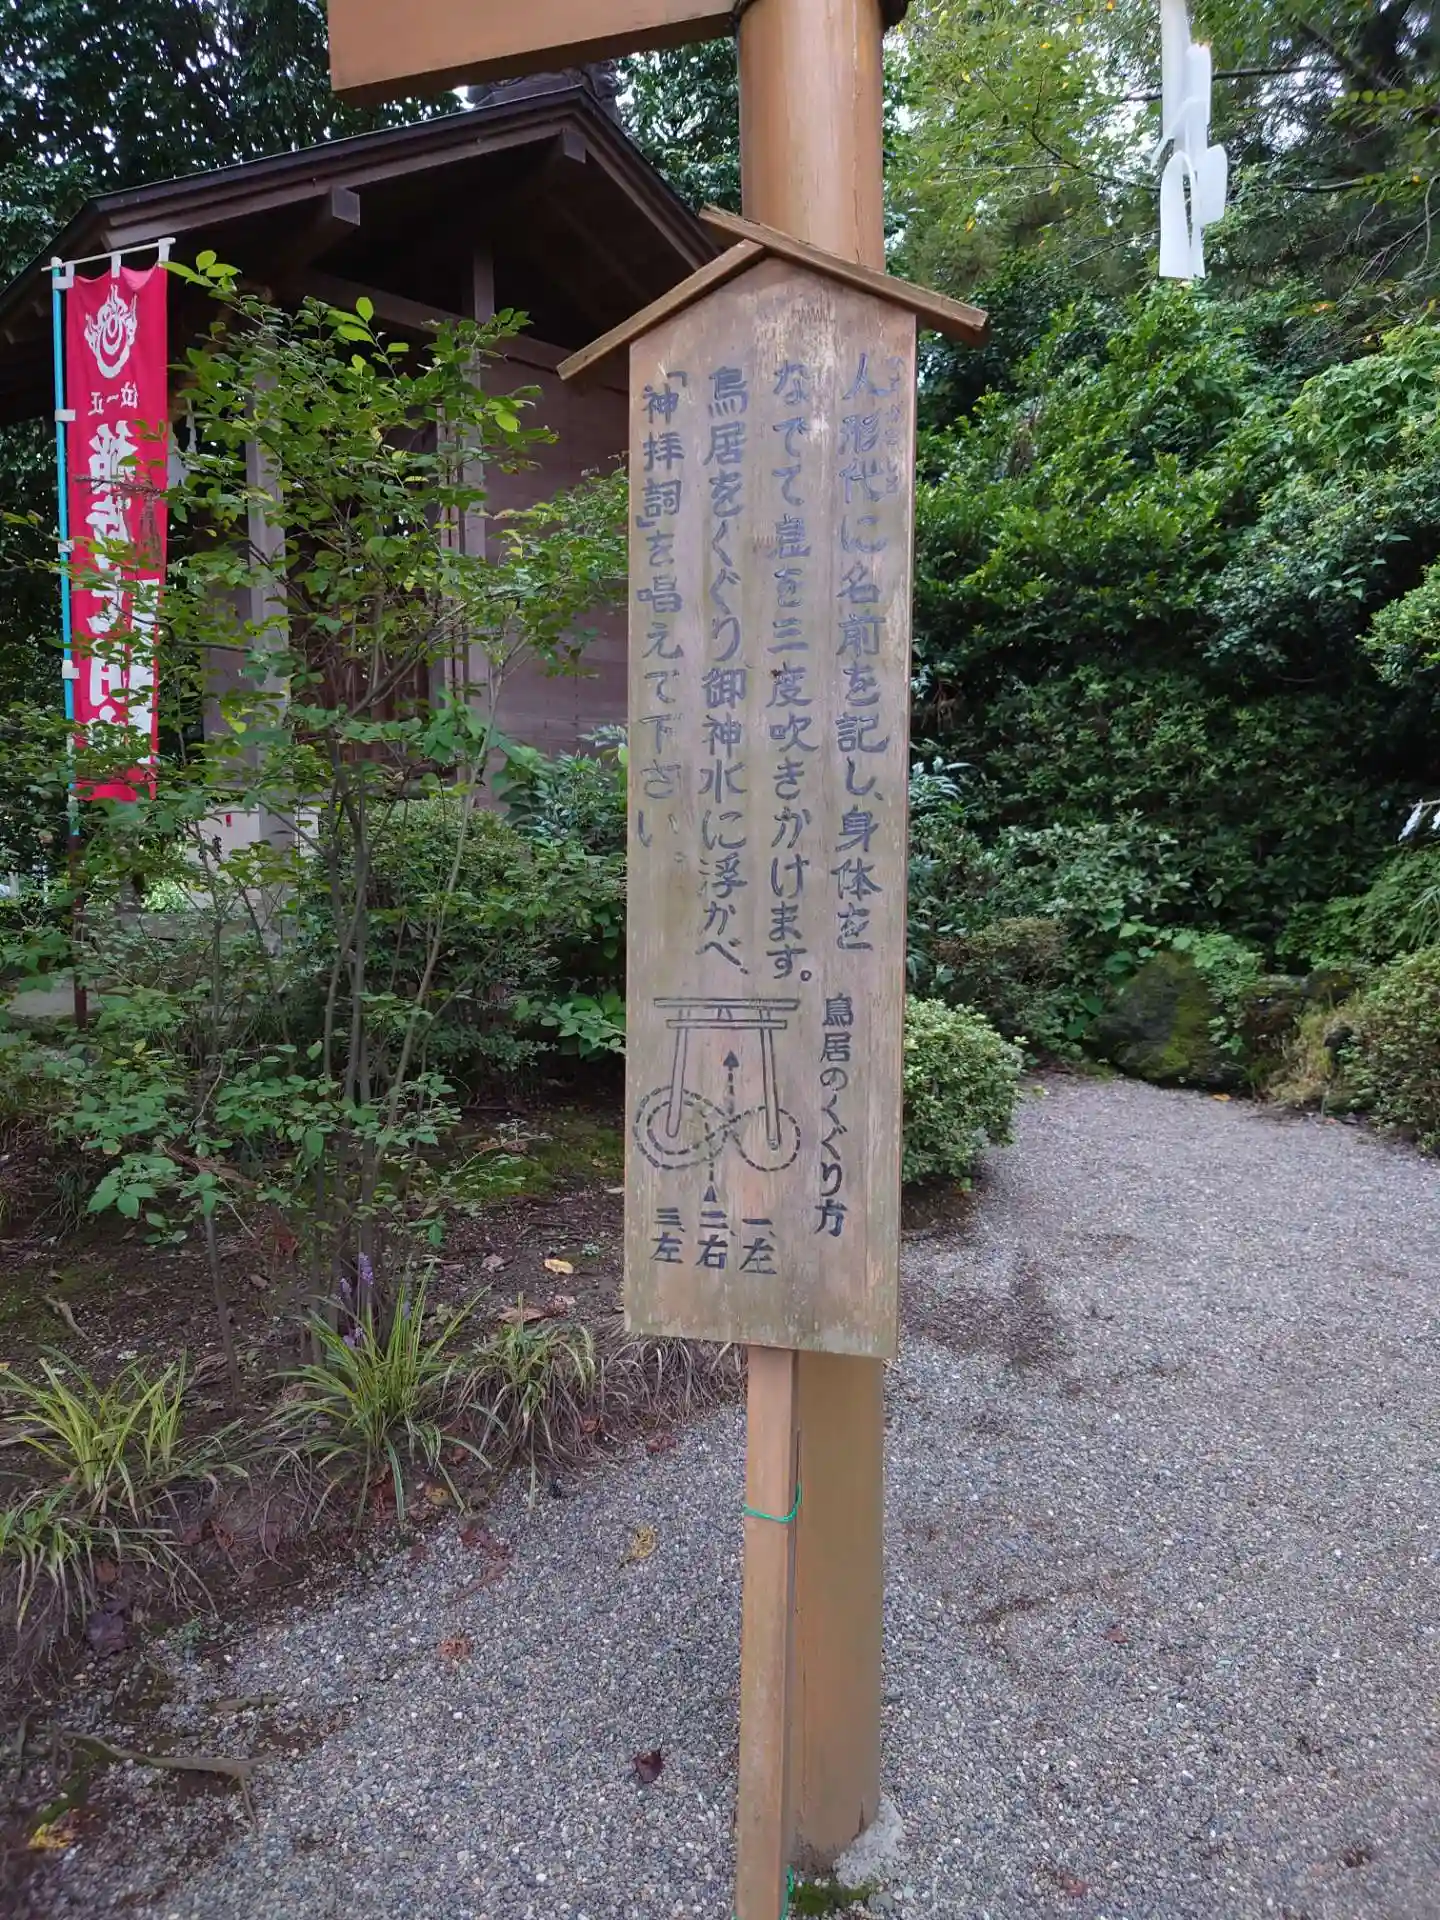 人形代に名前を記し、身体を
なでて息を三度吹きかけます。
鳥居をくぐり御神水に浮かべ、
「神拝詞」を唱えて下さい。
鳥居のくぐり方
一、左
二、右
三、左
正一位